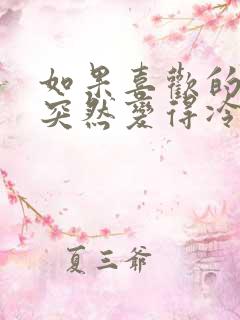 如果喜歡的
突然變得冷
夏三爺